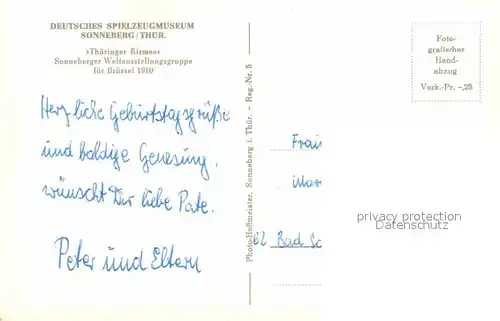 DEUTSCHES SPIELZEUGMUSEUM
SONNEBERG/THÜR.
»Thüringer Kirmes«
Sonneberger Weltausstellungsgruppe
für Brüssel 1910
Foto-
grafischer
Hand-
abzug
Verk.-Pr. -,25
Herzliche Geburtstagsgrüße
und baldige Genesung,
wünscht Dir liebe Pate.
Peter und Eltern
Photo-Hoffmeister, Sonneberg i. Thür. - Reg.-Nr. 5
62 Bad
privacy protection
Datenschutz